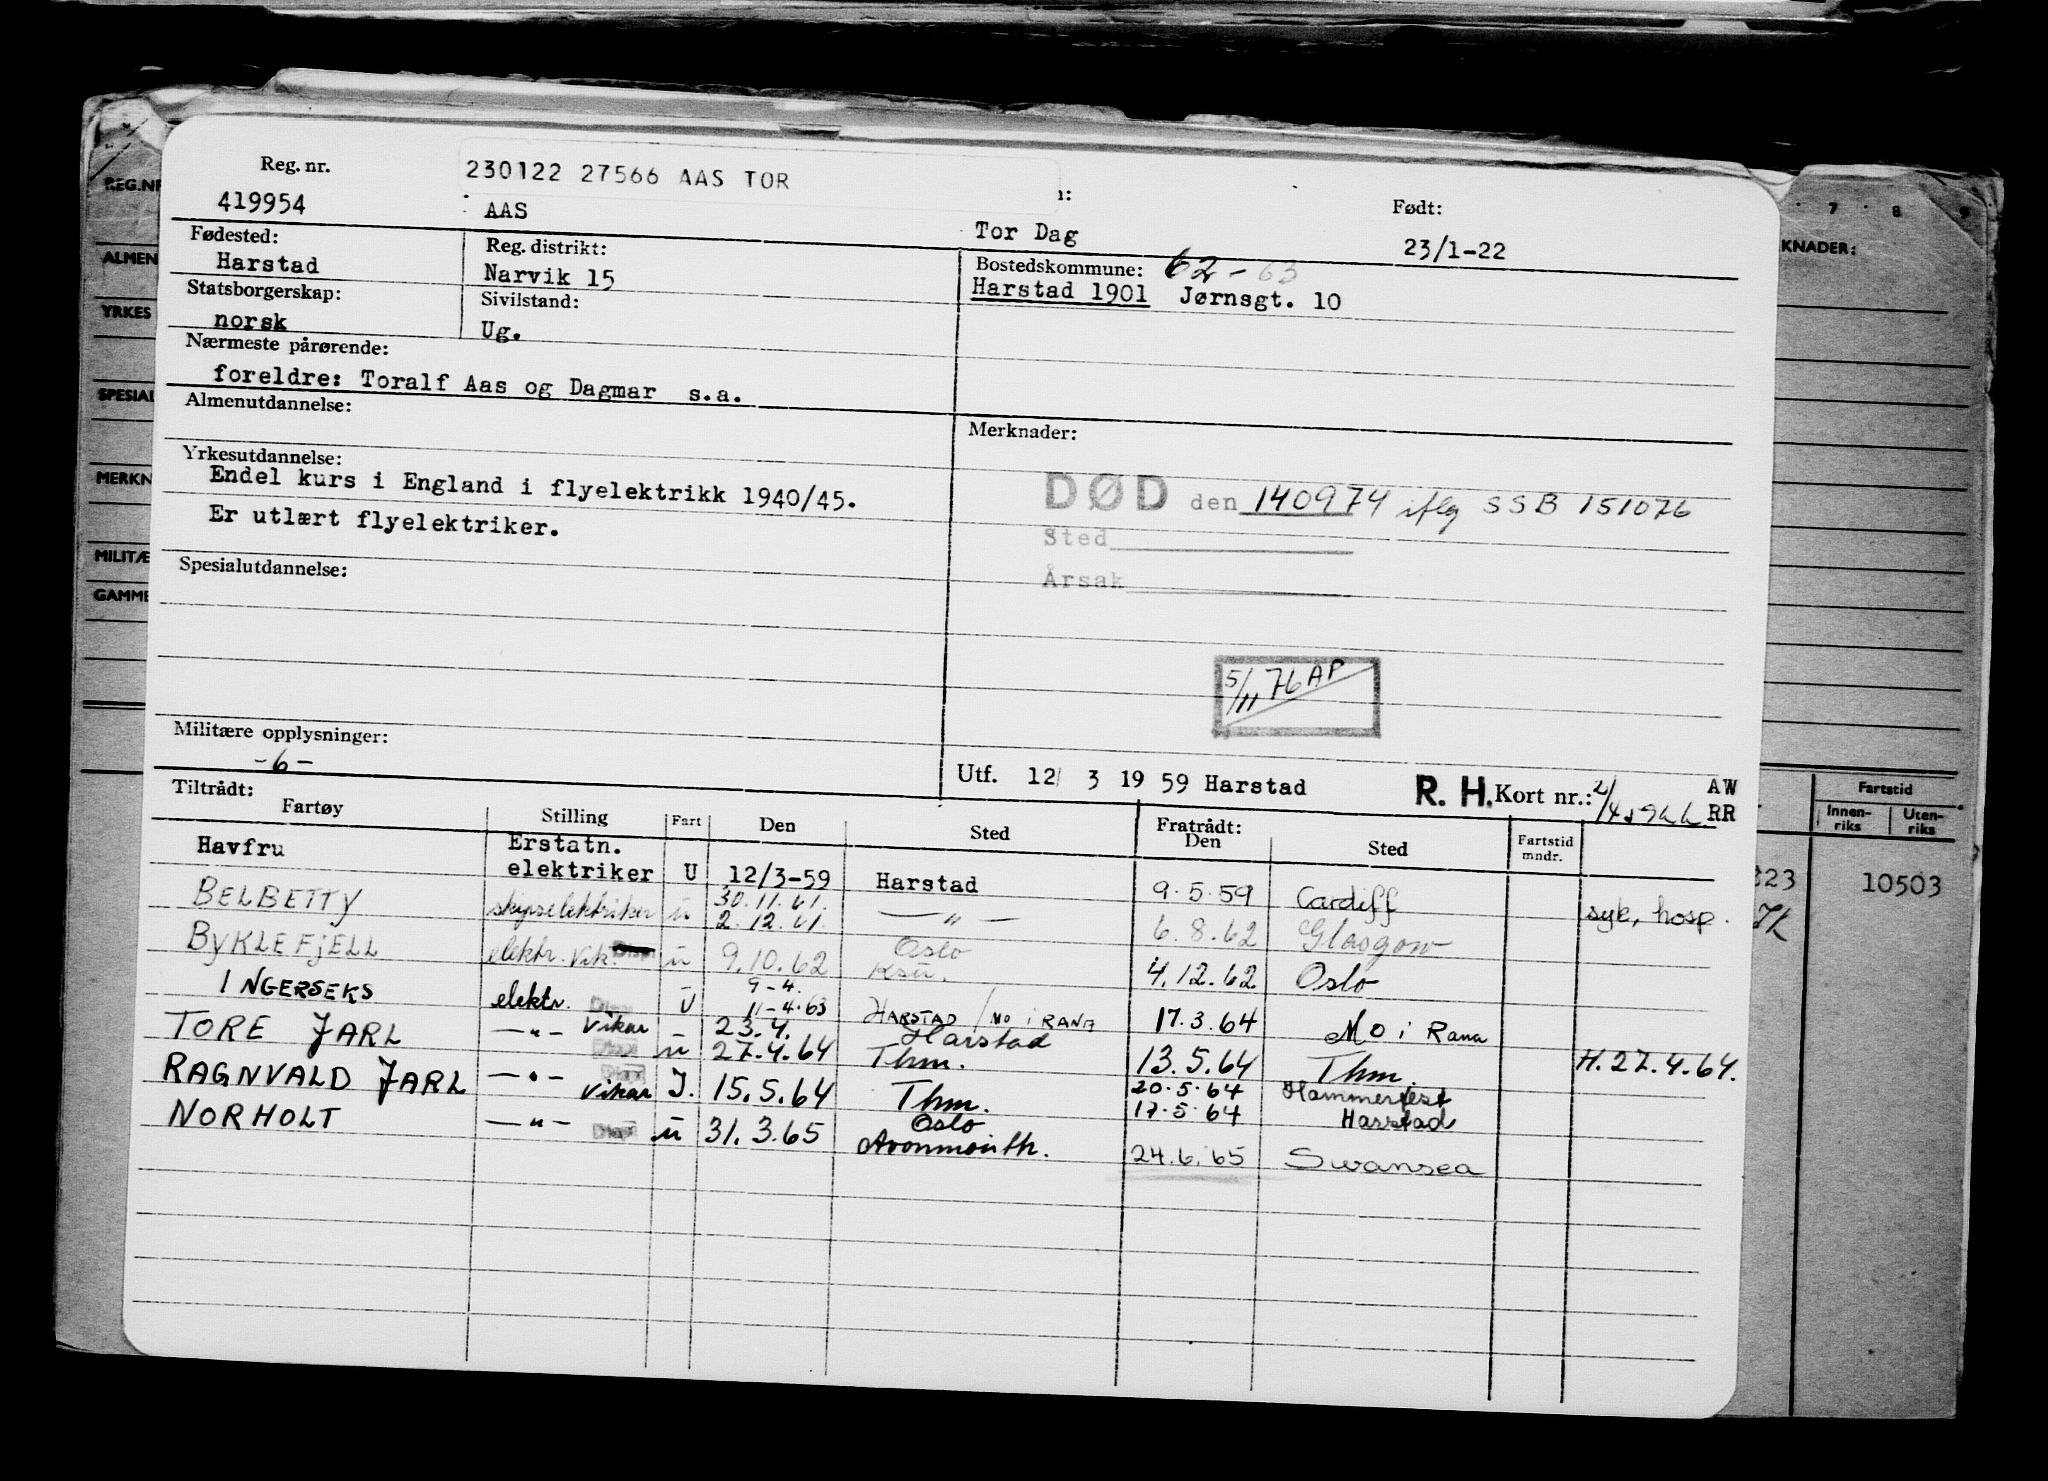 REG.NR
ALMEN
YRKES
SPESIAL
MERKN
MILITÆ
GAMME
7 8 9
KNADER:
Fartstid
Innen-
riks
Uten-
riks
323 10503
Reg. nr.
419954
230122 27566 AAS TOR
AAS
Tor Dag
Født:
23/1-22
Fødested:
Harstad
Reg. distrikt:
Narvik 15
Bostedskommune: 62-63
Harstad 1901 Jørnsgt. 10
Statsborgerskap:
norsk
Sivilstand:
Ug.
Nærmeste pårørende:
foreldre: Toralf Aas og Dagmar s.a.
Almenutdannelse:
Merknader:
Yrkesutdannelse:
Endel kurs i England i flyelektrikk 1940/45.
Er utlært flyelektriker.
DØD den 140974 iflg SSB 151076
Sted
Årsak
Spesialutdannelse:
5/11 76 AP
Militære opplysninger:
-6-
Utf. 12/ 3 19 59 Harstad
R. H. Kort nr.: 2/4
AW
RR
Tiltrådt:
Fartøy Stilling Fart Den Sted Fratrådt: Den Sted Fartstid mndr.
Havfru Erstatn. elektriker U 12/3-59 Harstad 9.5.59 Cardiff syk, hosp.
BELBETTY skipselektriker u 30.11.61. 2.12.61. —"— 6.8.62 Glasgow
BYKLEFJELL elektr. Vik. u 9.10.62 Oslo 4.12.62 Oslo
INGERSEKS elektr. U 9-4. 11-4.63 HARSTAD / MO i RANA 17.3.64 Mo i Rana
TORE JARL —"— Vikar u 23.4. 27.4.64 Harstad Thm. 13.5.64 Thm. H.27.4.64.
RAGNVALD JARL —"— Vikar J. 15.5.64 Thm. 20.5.64 Hammerfest 17.5.64 Harstad
NORHOLT —"— u 31.3.65 Oslo Avonmouth. 24.6.65 Swansea